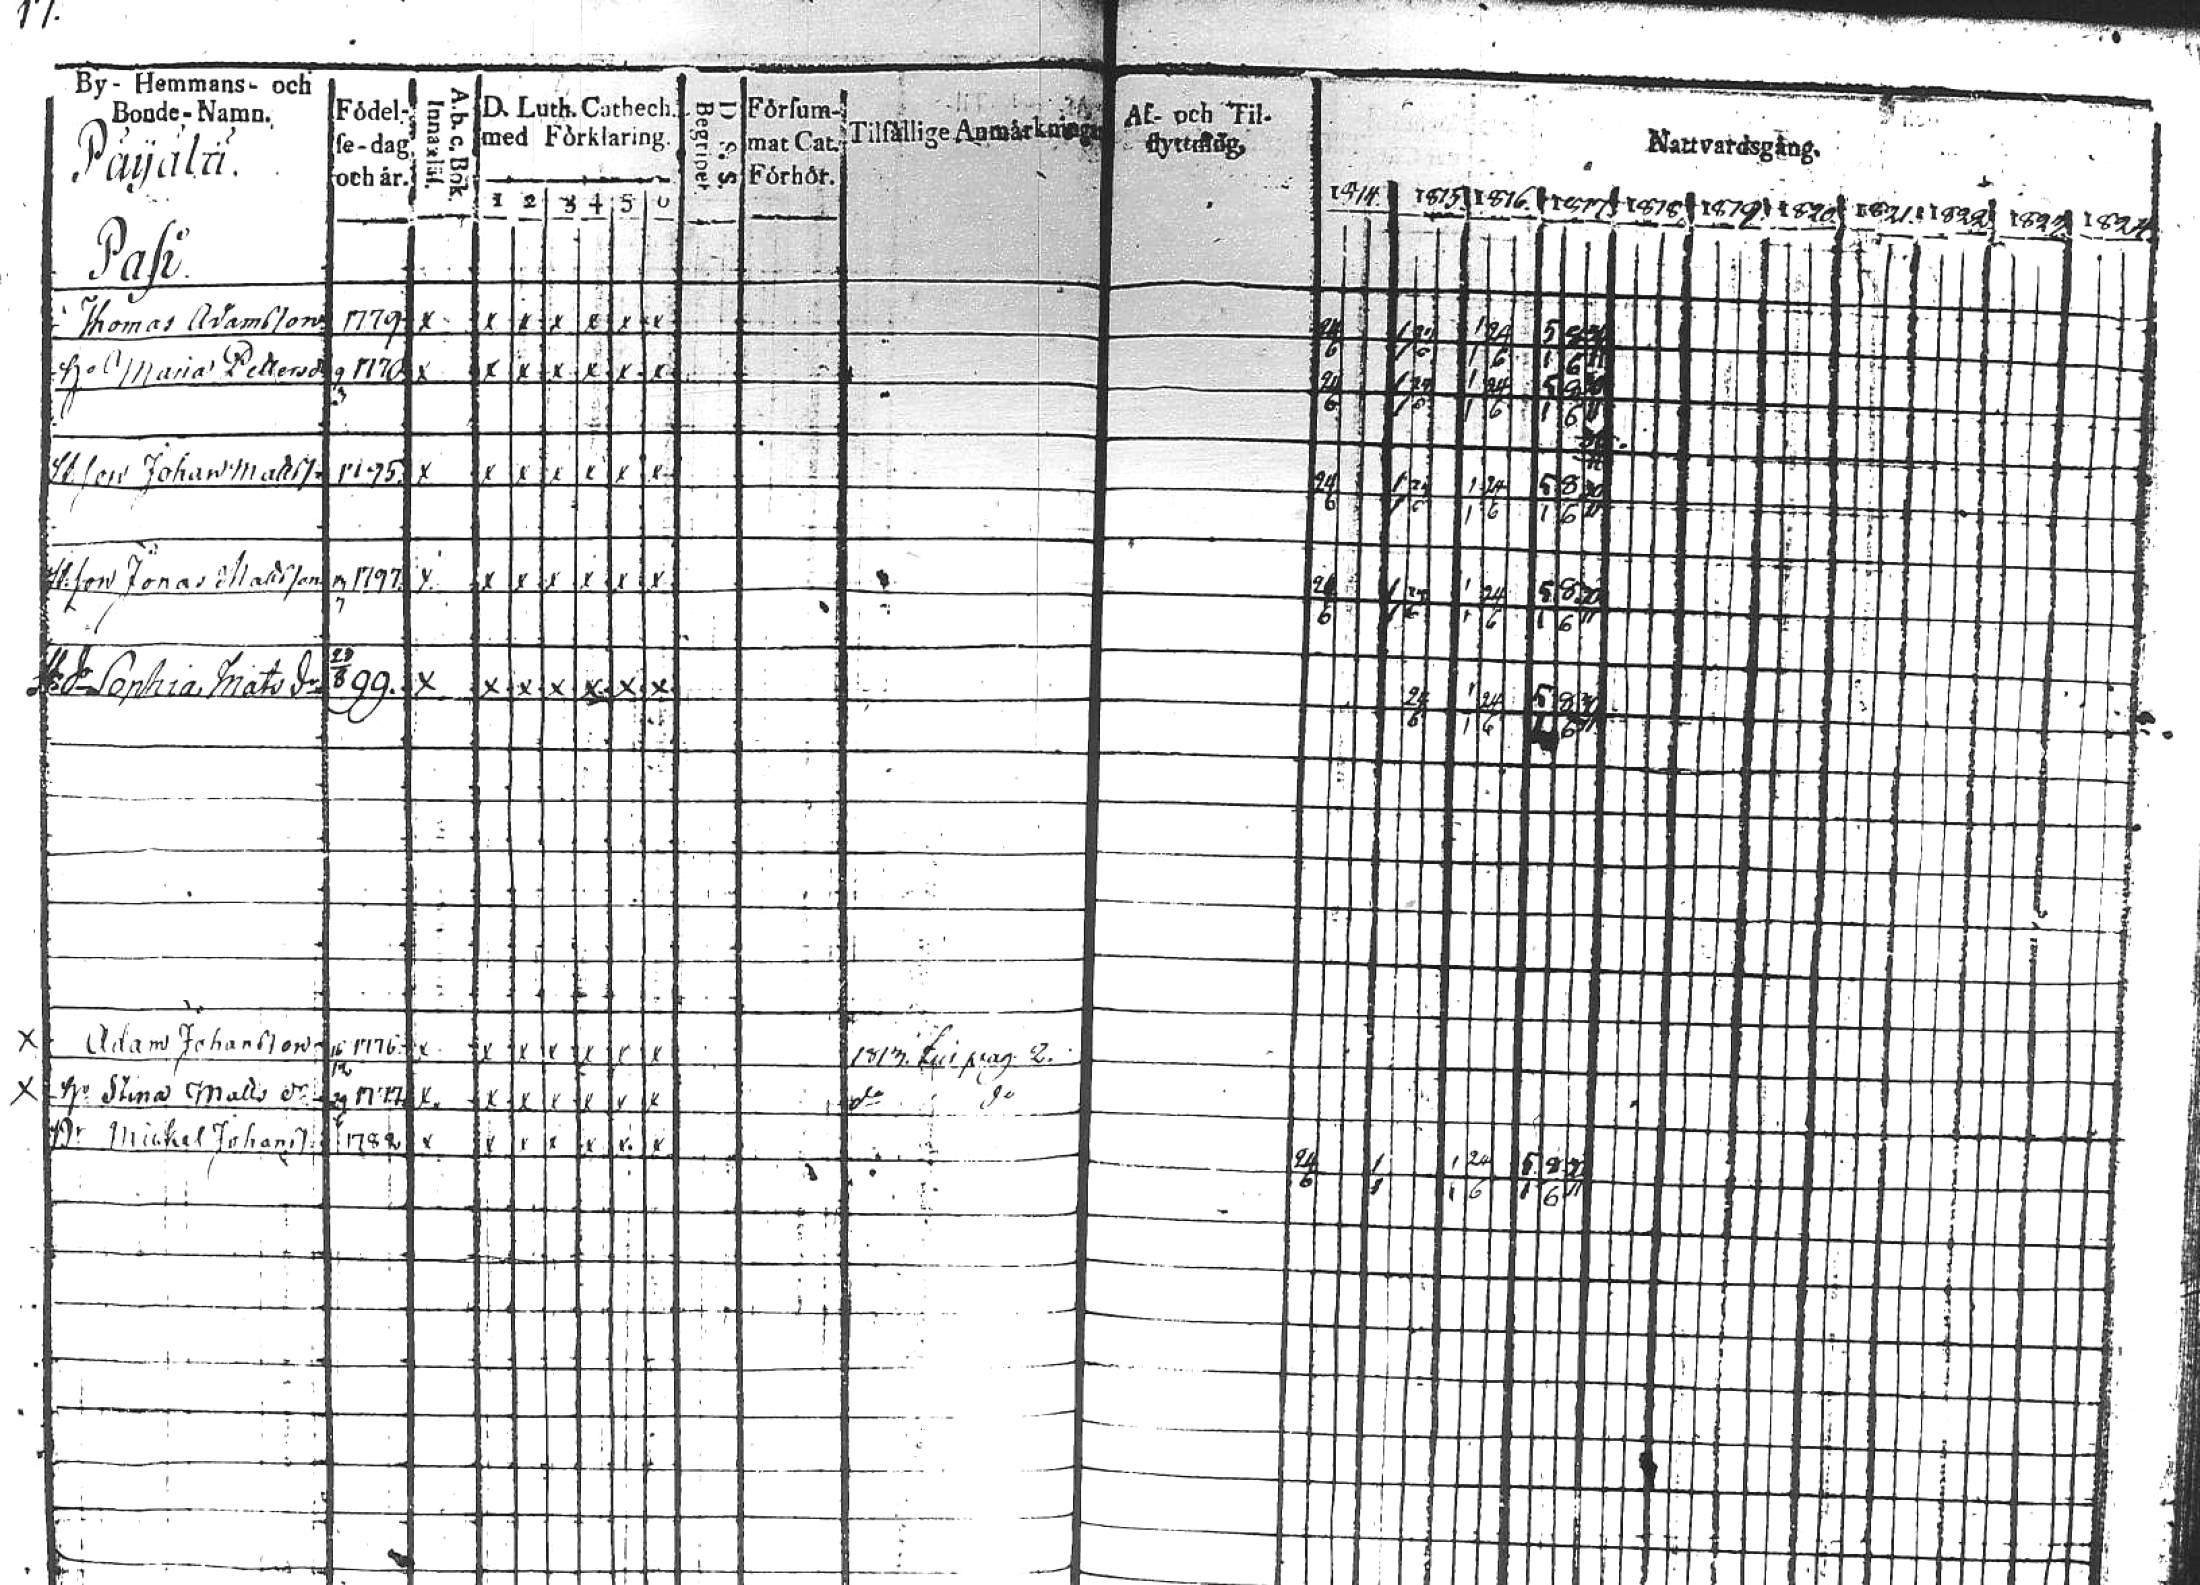 17.
By- Hemmans- och Bonde-Namn. Födel- se-dag och år. A. b. c. Bok. Innanläs. D. Luth. Cathech. med Förklaring. 1 2 3 4 5 6 D. S. S. Begriper. Försum- mat Cat. Förhör. Tilfällige Anmärkningar Af- och Til- flyttning. Nattvardsgång.
1814 1815 1816 1817 1818 1819 1820 1821 1822 1823 1824
Päyälä.
Pasi.
Thomas Adamsson 1779 x x x x x x x 24/6 1/1 24/6 1/1 24/6 5/1 8/6 30/11
H. Maria Pettersd 9/3 1770 x x x x x x x 24/6 1/1 24/6 1/1 24/6 5/1 8/6 30/11
St. son Johan Matss. 1795. x x x x x x x 24/6 1/1 24/6 1/1 24/6 5/1 8/6 30/11
St. son Jonas Matsson 1797. x x x x x x x 24/6 1/1 24/6 1/1 24/6 5/1 8/6 30/11
Sophia Mats dr 28/8 99. x x x x x x x 24/6 1/1 24/6 5/1 8/6 30/11
x Adam Johansson 16/12 1776 x x x x x x x 1813. pag. 2.
x H. Stina Matts dr 1777 x. x x x x x x do do
Dr Mickel Johanss. 1782 x x x x x x x 24/6 1/1 1/1 24/6 5/1 8/6 30/11